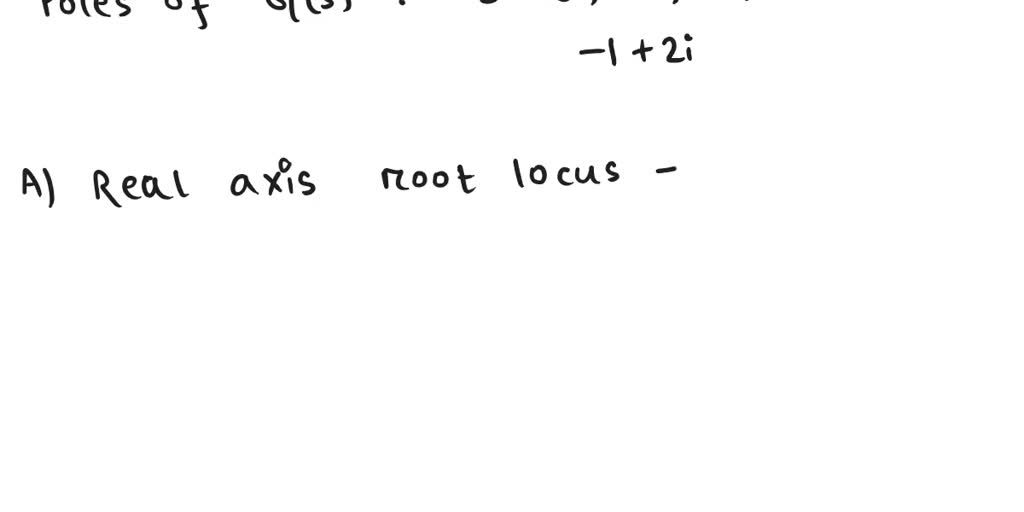 Poles of G(s)
-1 + 2i
A) Real axis root locus -